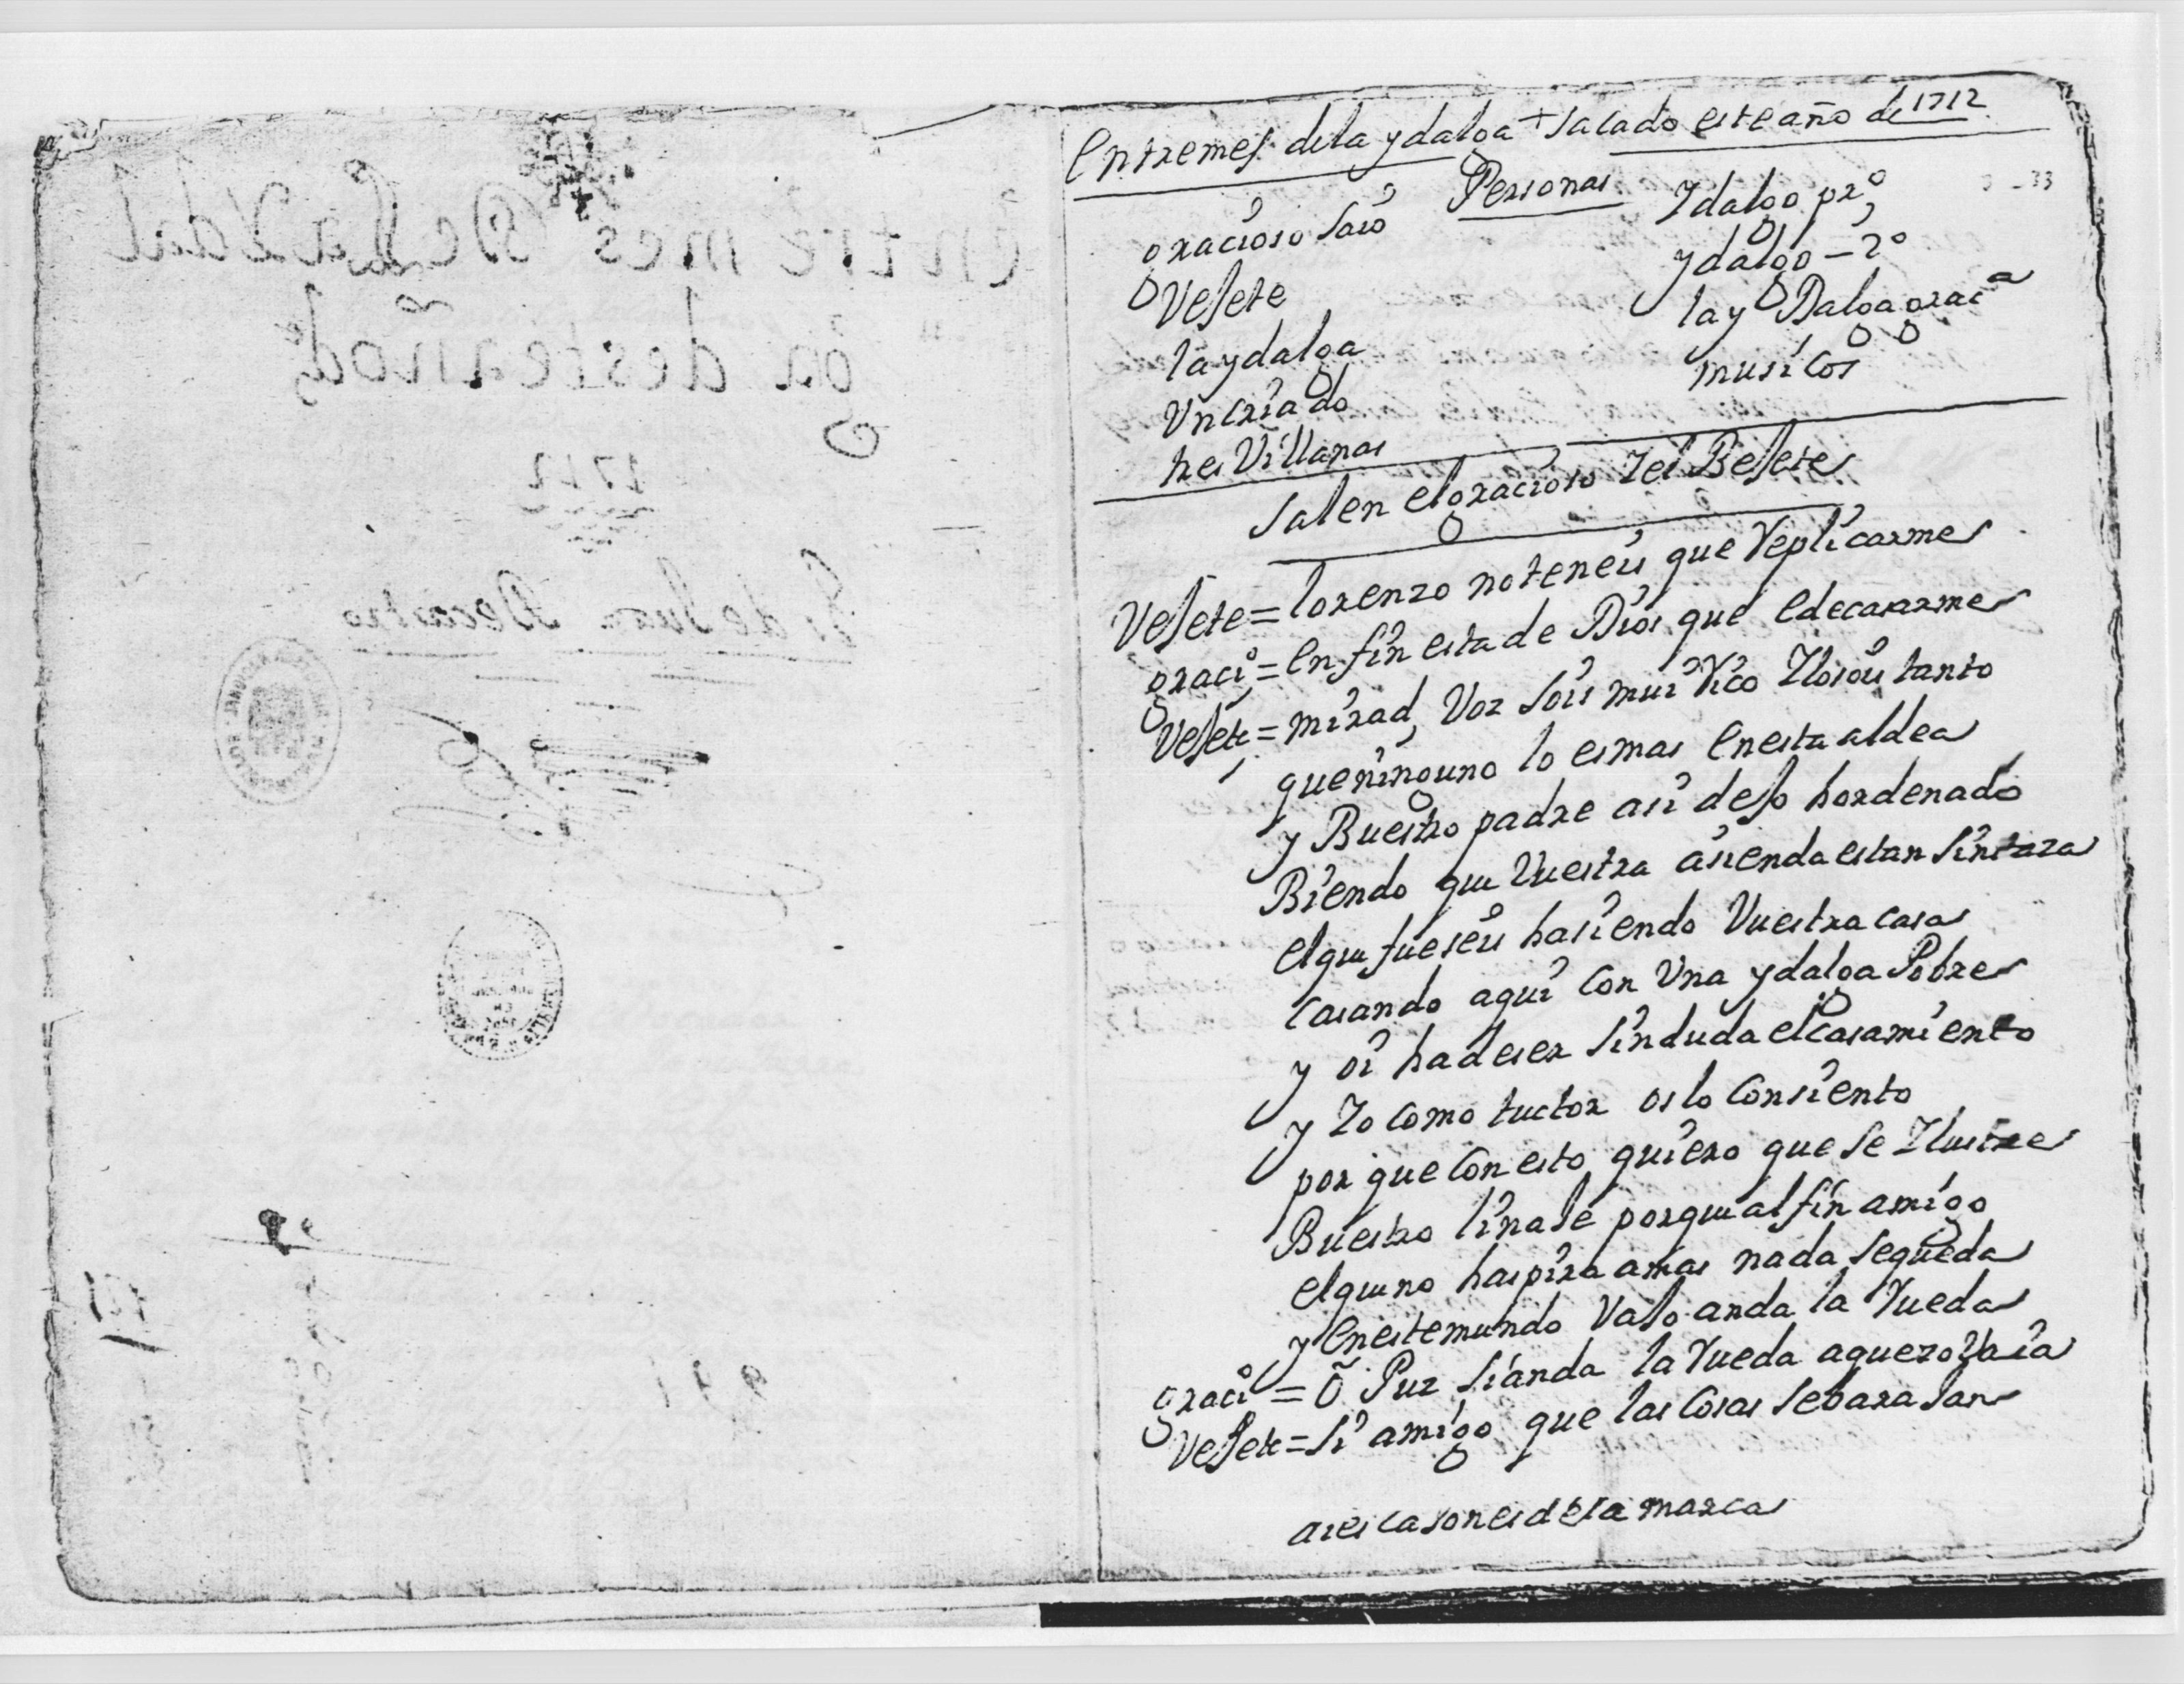 Entremes de la ydalga + sacado este año de 1712
Personas
gracioso
Vejete
la ydalga
Un criado
tres Villanos
Idalgo pro
ydalgo - 2o
la yDalga graca
musicos
salen el gracioso I el Bejete
Vejete = lorenzo no teneis que Replicarme
graci = en fin esta de Dios que e de casarme
Vejete = mirad, Voz sois mui Rico I lo sois tanto
que ninguno lo es mas en esta aldea
y Buestro padre asi dejo hordenado
Biendo que Vuestra asienda es tan sin taza
el que fueseis hasiendo Vuestra casa
casando aqui con Una ydalga Pobre
y oi ha de ser sin duda el casamiento
y Io como tuctor os lo consiento
por que con esto quiero que se Ilustre
Buestro linaje porque al fin amigo
el que no haspira a mas nada se queda
y en este mundo Vajo anda la Rueda
graci = õ Puz si anda la Rueda
Vejete = si amigo que las cosas se barajan
1712
Entremes De La Ydal
ga deste año de
1712
de Juan Decastro